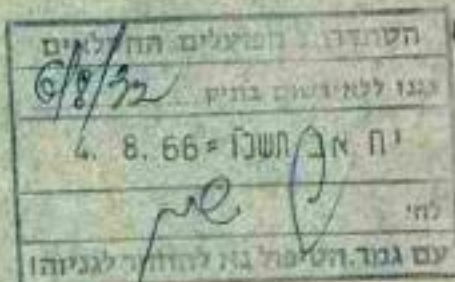 הסתדרות הפועלים החקלאים
6/8/32
נגנז ללא רשום בתיק
4. 8. 66 = י״ח אב תשכ״ו
לחי
עם גמר הטיפול נא להחזיר לגניזה!